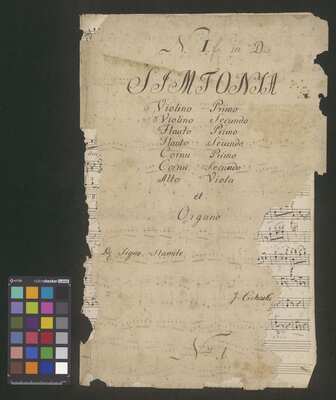 N. I in D
SIMFONIA
Violino Primo
Violino Secundo
Flauto Primo
Flauto Secundo
Cornu Primo
Cornu Secundo
Alto Viola
et
Organo
Del Signo. Stamitz